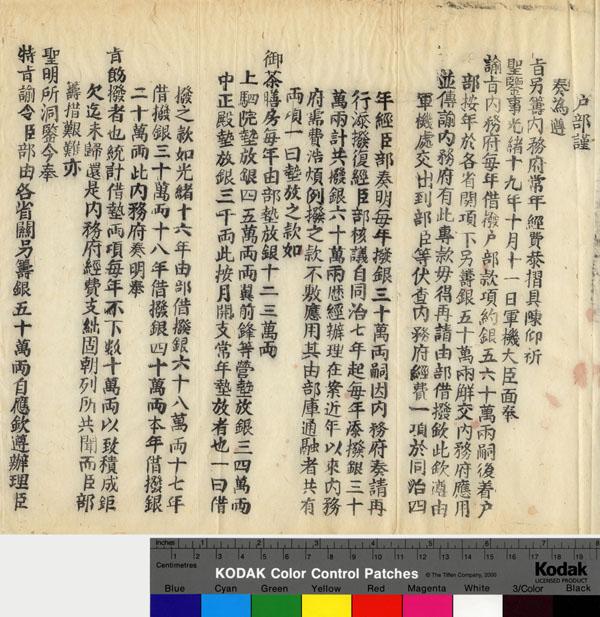 户部謹
奏為遵
旨另籌内務府常年經費恭摺具陳仰祈
聖鑒事光緒十九年十月十一日軍機大臣面奉
諭旨内務府每年借撥户部款項約銀五六十萬兩嗣後着户
部按年於各省關項下另籌銀五十萬兩解交内務府應用
並傳諭内務府有此專款毋得再請由部借撥欽此欽遵由
軍機處交出到部臣等伏查内務府經費一項於同治四
年經臣部奏明每年撥銀三十萬兩嗣因内務府奏請再
行添撥復經臣部核議自同治七年起每年添撥銀三十
萬兩計共撥銀六十萬兩歷經辦理在案近年以來内務
府需費浩煩例撥之款不敷應用其由部庫通融者共有
兩項一曰墊放之款如
御茶膳房每年由部墊放銀十二三萬兩
上駟院墊放銀四五萬兩兩翼前鋒等營墊放銀三四萬兩
中正殿墊放銀三千兩此按月開支常年墊放者也一曰借
撥之款如光緒十六年由部借撥銀六十八萬兩十七年
借撥銀三十萬兩十八年借撥銀四十萬兩本年借撥銀
二十萬兩此内務府奏明奉
旨飭撥者也統計借墊兩項每年不下數十萬兩以致積成鉅
欠迄未歸還是内務府經費支絀固朝列所共聞而臣部
籌措艱難亦
聖明所洞鑒今奉
特旨諭令臣部由各省關另籌銀五十萬兩自應欽遵辦理臣
Inches 1 2 3 4 5 6 7
Centimetres 1 2 3 4 5 6 7 8 9 10 11 12 13 14 15 16 17 18 19
KODAK Color Control Patches © The Tiffen Company, 2000 Kodak
LICENSED PRODUCT
Blue Cyan Green Yellow Red Magenta White 3/Color Black